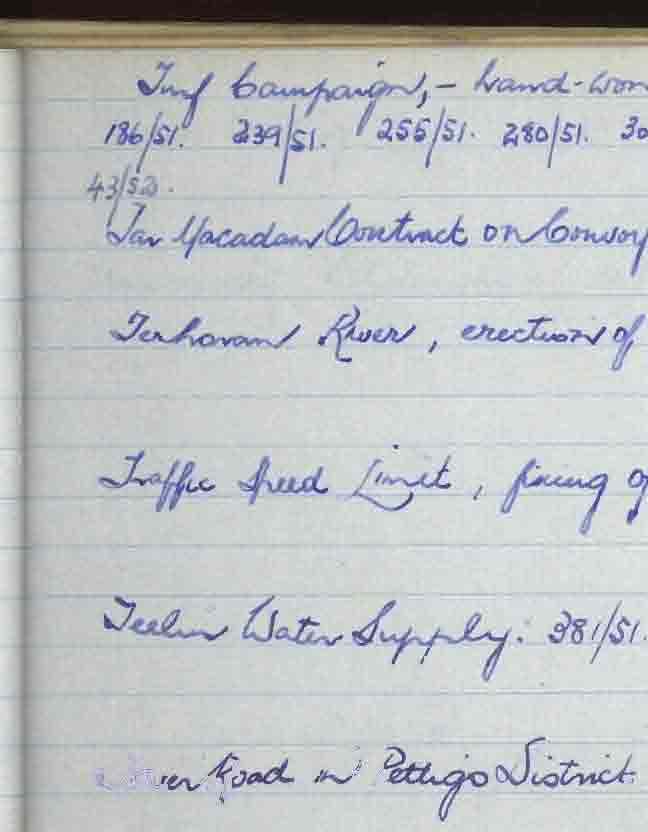 Turf Campaign, - hand-won
186/51. 239/51. 255/51. 280/51. 30
43/52.
Tar Macadam Contract on Convoy
River, erection of
Traffic Speed Limit, fixing of
Teelin Water Supply. 381/51.
Road in Pettigo District.